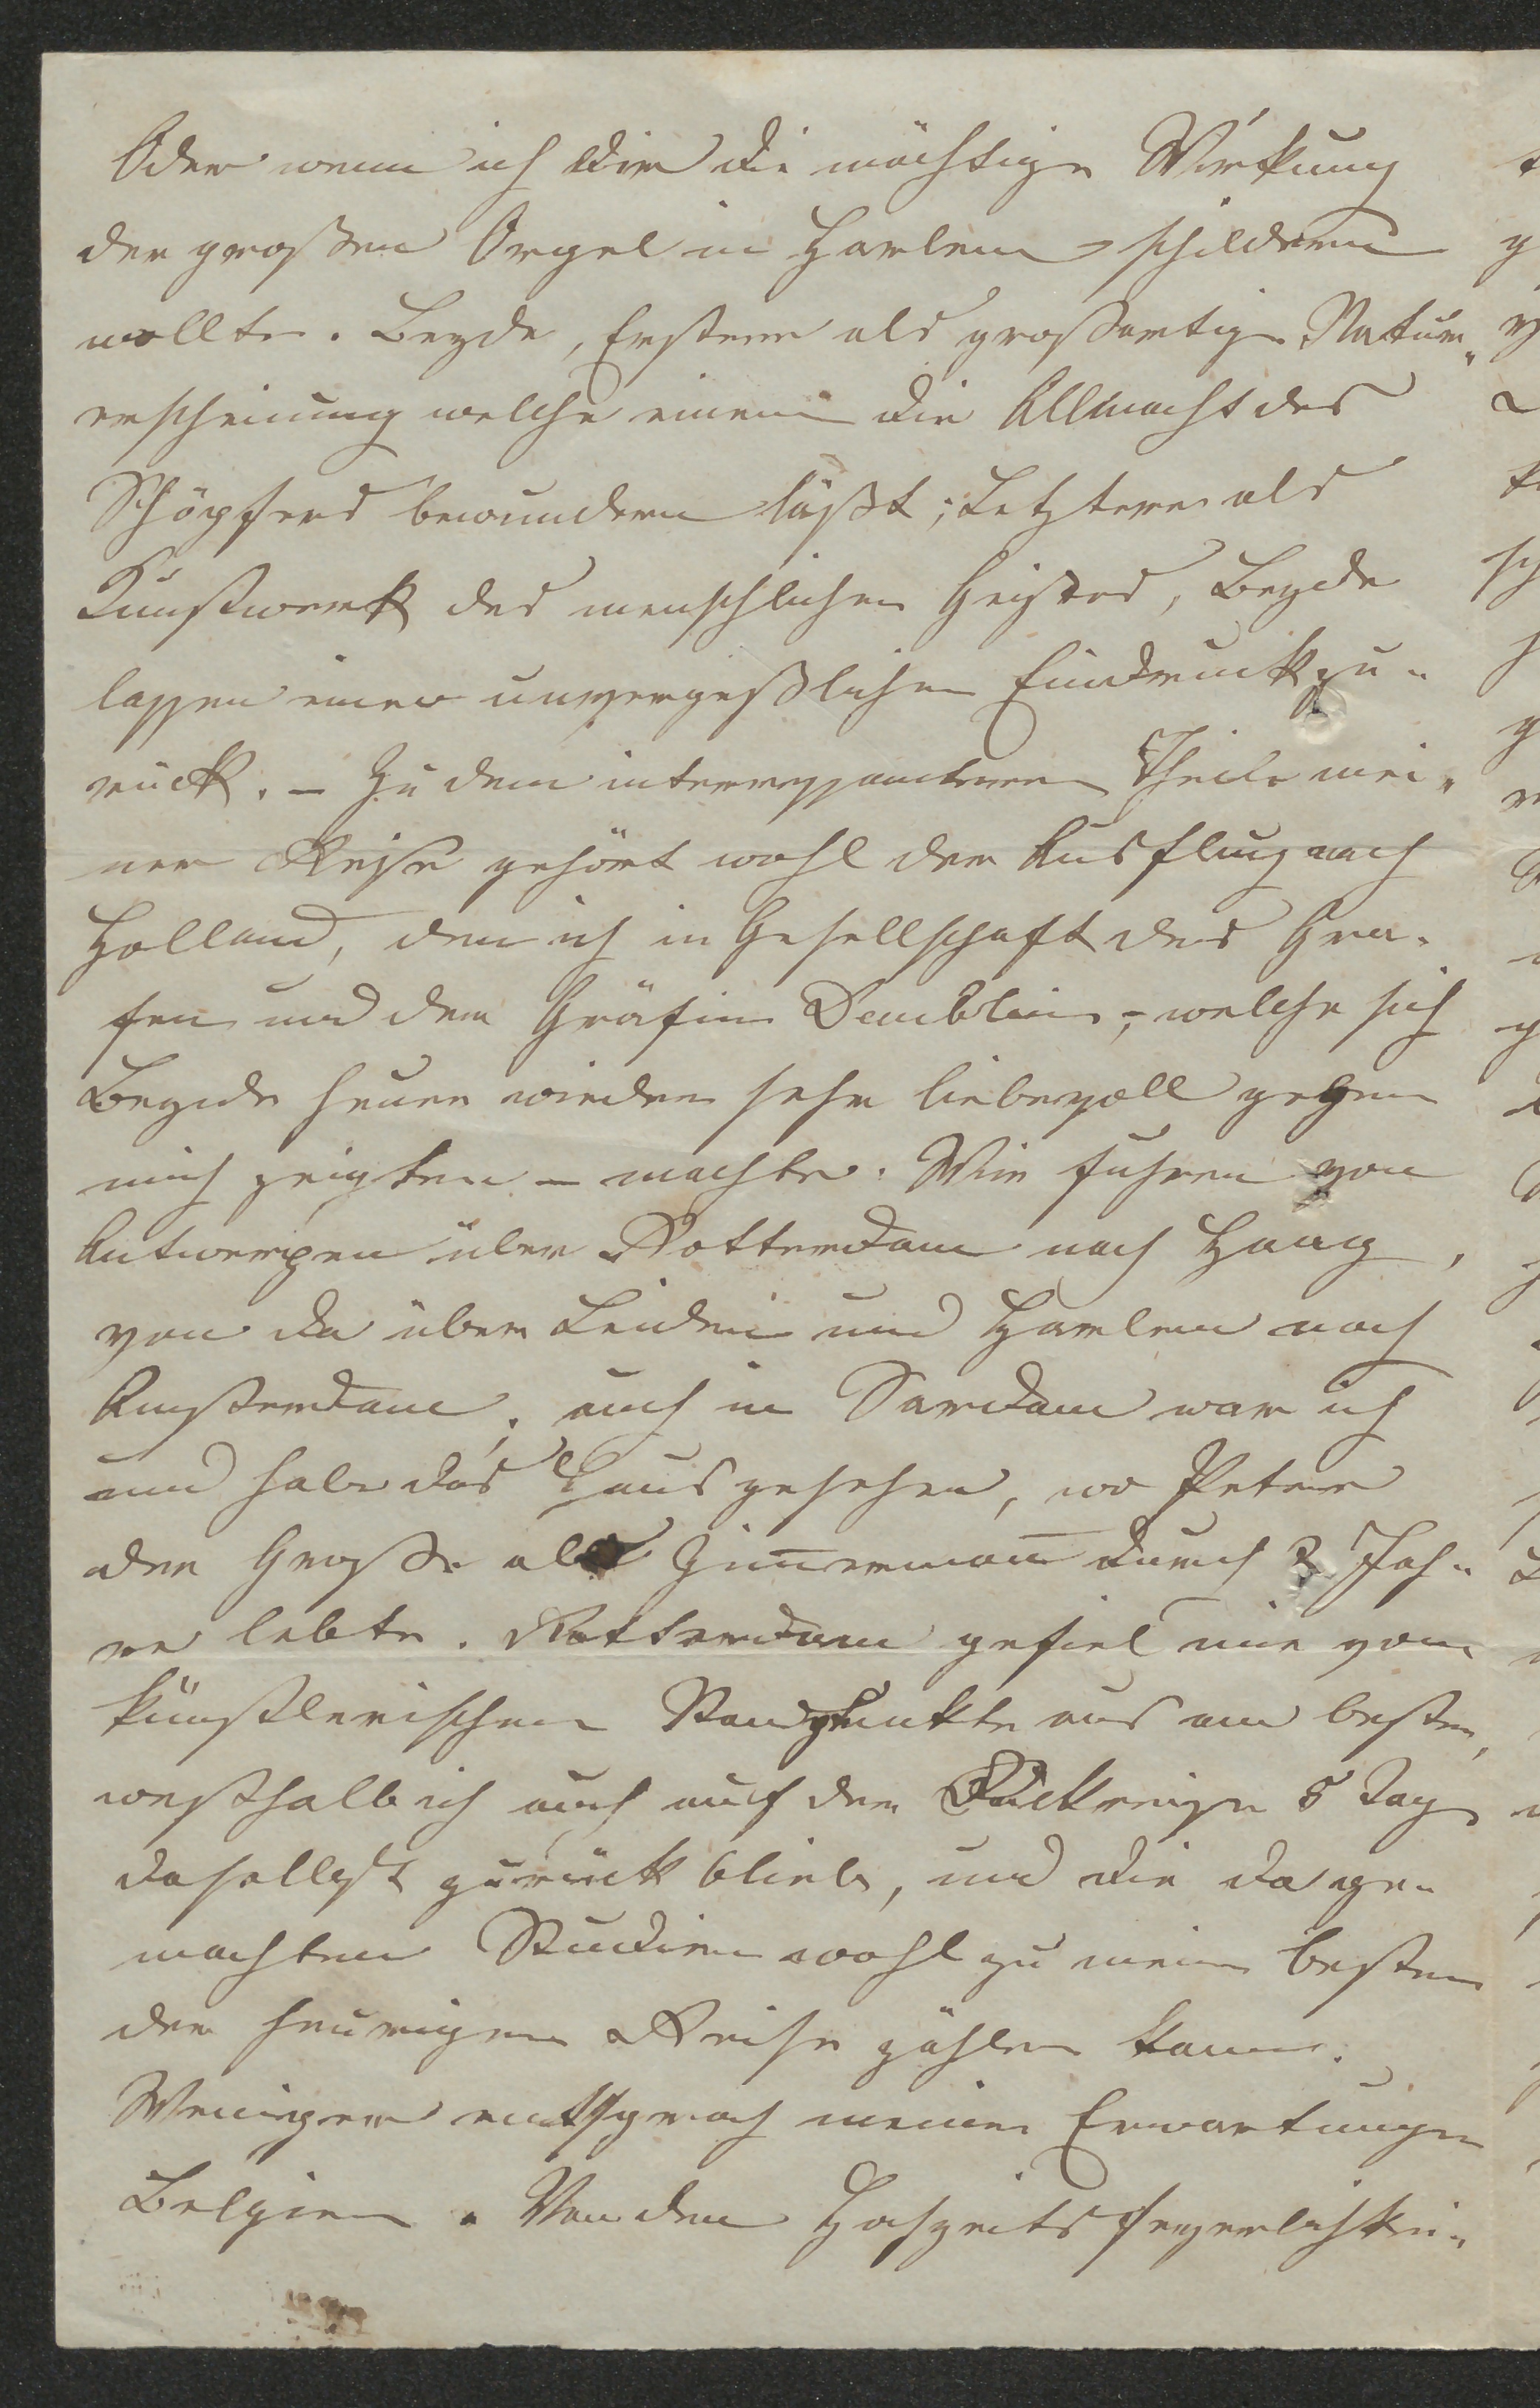 Oder wenn ich Dir die mächtige Wirkung
der großen Orgel in Harlem schildern
wollte. Beyde, Erstere als großartige Natur„
erscheinung welche einem die Allmacht des
Schöpfers bewundern läßt; Letztere als
Kunstwerk des menschlichen Geistes, Beyde
lassen einen unvergeßlichen Eindruck zu„
rück. – Zu dem interessanteren Theile mei„
ner Reise gehört wohl der Ausflug nach
Holland, den ich in Gesellschaft des Gra„
fen und der Gräfin Demblin, – welche sich
Beyde heuer wieder sehr liebevoll gegen
mich zeigten – machte. Wir fuhren von
Antwerpen über Rotterdam nach Haag,
von da über Leiden und Harlem nach
Amsterdam, auch in Sardam war ich
und habe das Haus gesehen, wo Peter
der Große als Zim̄erman̄ durch 2 Jah„
re lebte. Rotterdam gefiel mir vom
künstlerischen Standpunkte aus am besten,
weßhalb ich auch auf der Rückreise 5 Tage
daselbst zurück blieb, und die da ge„
machten Studien wohl zu meinen besten
der heurigen Reise zählen kann.
Weniger entsprach meinen Erwartungen
Belgien. Von den Hochzeitsfeyerlichkei„